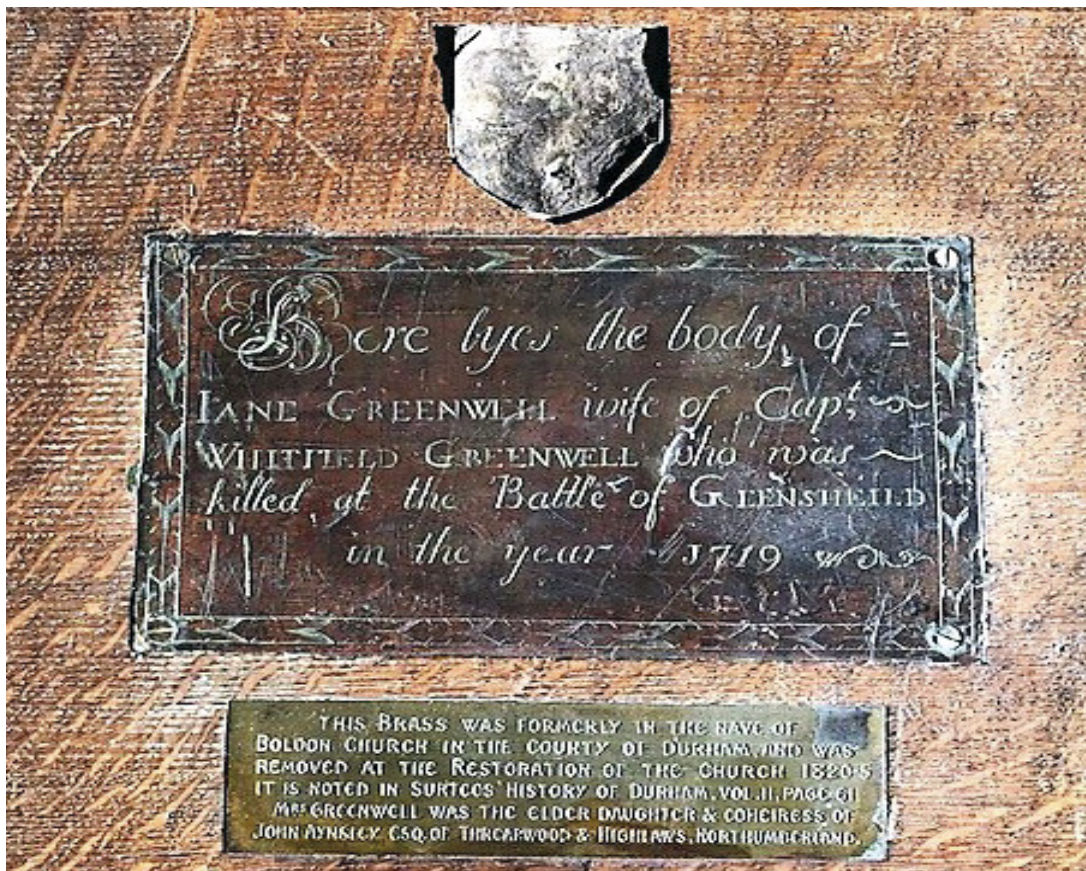 Here lyes the body of =
IANE GREENWELL wife of Capt
WHITFIELD GREENWELL who was
killed at the Battle of GLENSHEILD
in the year 1719
THIS BRASS WAS FORMERLY IN THE NAVE OF
BOLDON CHURCH IN THE COUNTY OF DURHAM, AND WAS
REMOVED AT THE RESTORATION OF THE CHURCH
IT IS NOTED IN SURTEES' HISTORY OF DURHAM, VOL. II, PAGE 61
MRS GREENWELL WAS THE ELDER DAUGHTER & COHEIRESS OF
JOHN AYNSLEY ESQ. OF THREAPWOOD & HIGHLAWS, NORTHUMBERLAND.